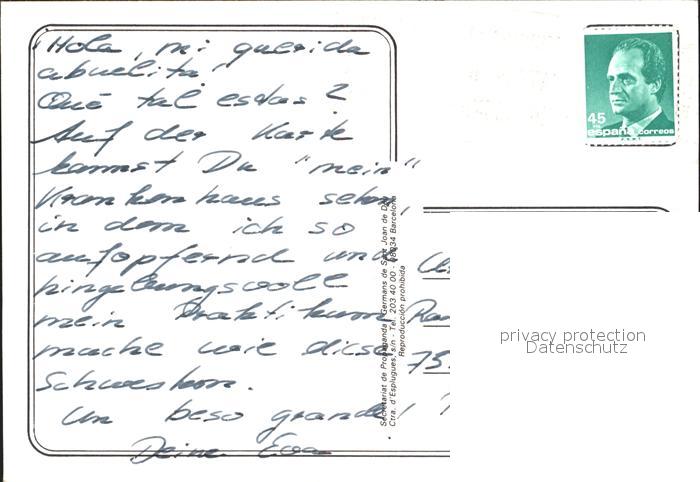 ¡Hola, mi querida
abuelita!
Qué tal estas?
Auf der Karte
kannst Du "mein"
Krankenhaus sehn,
in dem ich so
aufopfernd und
hingebungsvoll
mein Praktikum
mache wie diese
Schwestern.
Un beso grande!
Deine Eva
Secretariat de Propaganda, Germans de Sant Joan de D
Ctra. d'Esplugues, s/n - Tel. 203 40 00 - 08034 Barcelona
Reproducción prohibida
45
españa correos
privacy protection
Datenschutz